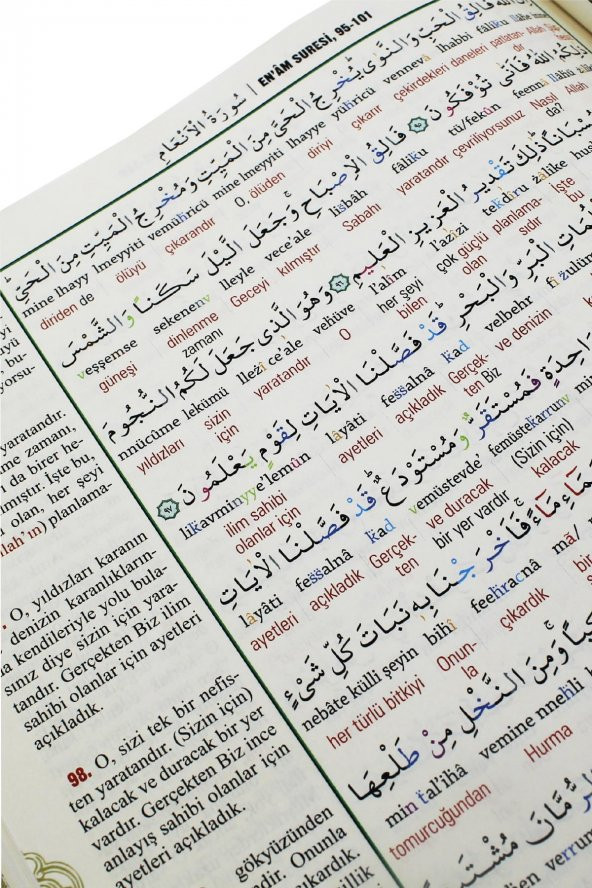 EN'ÂM SURESİ, 95-101 | سُورَةُ الْاَنْعَامِ
اللّٰهَ فَالِقُ الْحَبِّ وَالنَّوٰىۜ يُخْرِجُ الْحَيَّ مِنَ الْمَيِّتِ وَمُخْرِجُ الْمَيِّتِ مِنَ الْحَيِّۜ
mine lhayy lmeyyiti vemühricü mine lmeyyiti lhayye yühricü vennevâ lhabbi fâliku llâhe
diriden de ölüyü çıkarandır O, ölüden diriyi çıkarır çekirdekleri daneleri patlatan- Allah
ذٰلِكُمُ اللّٰهُ فَاَنّٰى تُؤْفَكُونَ ﴿٩٥﴾ فَالِقُ الْاِصْبَاحِۚ وَجَعَلَ الَّيْلَ سَكَناً وَالشَّمْسَ
veşşemse sekenenv lleyle vece'ale lisbâh fâliku tü/fekûn feennâ llâhü
güneşi dinlenme zamanı Geceyi kılmıştır Sabahı yaratandır çevriliyorsunuz Nasıl da? Allah
حُسْبَاناًۜ ذٰلِكَ تَقْدِيرُ الْعَزِيزِ الْعَلِيمِ ﴿٩٦﴾ وَهُوَ الَّذِي جَعَلَ لَكُمُ النُّجُومَ
nnücûme lekümü ce'ale llezî vehüve l'alîm l'azîzi tekdîru zâlike
yıldızları sizin için yaratandır O her şeyi bilen çok güçlü olan planlama- sıdır İşte bu
ظُلُمَاتِ الْبَرِّ وَالْبَحْرِۜ قَدْ فَصَّلْنَا الْاٰيَاتِ لِقَوْمٍ يَعْلَمُونَ ﴿٩٧﴾
likavminyye'lemûn lâyâti fessalnâ kad velbehr
ilim sahibi olanlar için ayetleri açıkladık Gerçek- ten Biz ve denizin
وَاحِدَةٍ فَمُسْتَقَرٌّ وَمُسْتَوْدَعٌۜ قَدْ فَصَّلْنَا الْاٰيَاتِ
lâyâti fessalnâ kad vemüstevde' femüstekarrunv
ayetleri açıkladık Gerçek- ten ve duracak bir yer vardır (Sizin için) kalacak
مَاءًۚ فَاَخْرَجْنَا بِهِ نَبَاتَ كُلِّ شَيْءٍ
nebâte külli şeyin bihî feehracnâ
her türlü bitkiyi Onun- la çıkardık
وَمِنَ النَّخْلِ مِنْ طَلْعِهَا
min tal'ihâ vemine nnehli
tomurcuğundan Hurma
رُمَّانَ
yaratandır.
me zamanı,
da birer he-
lmıştır. İşte bu,
olan, her şeyi
lah'ın) planlama-
O, yıldızları karanın
denizin karanlıkların-
a kendileriyle yolu bula-
sınız diye sizin için yara-
tandır. Gerçekten Biz ilim
sahibi olanlar için ayetleri
açıkladık.
98. O, sizi tek bir nefis-
ten yaratandır. (Sizin için)
kalacak ve duracak bir yer
vardır. Gerçekten Biz ince
anlayış sahibi olanlar için
ayetleri açıkladık.
gökyüzünden
ndirendir. Onunla